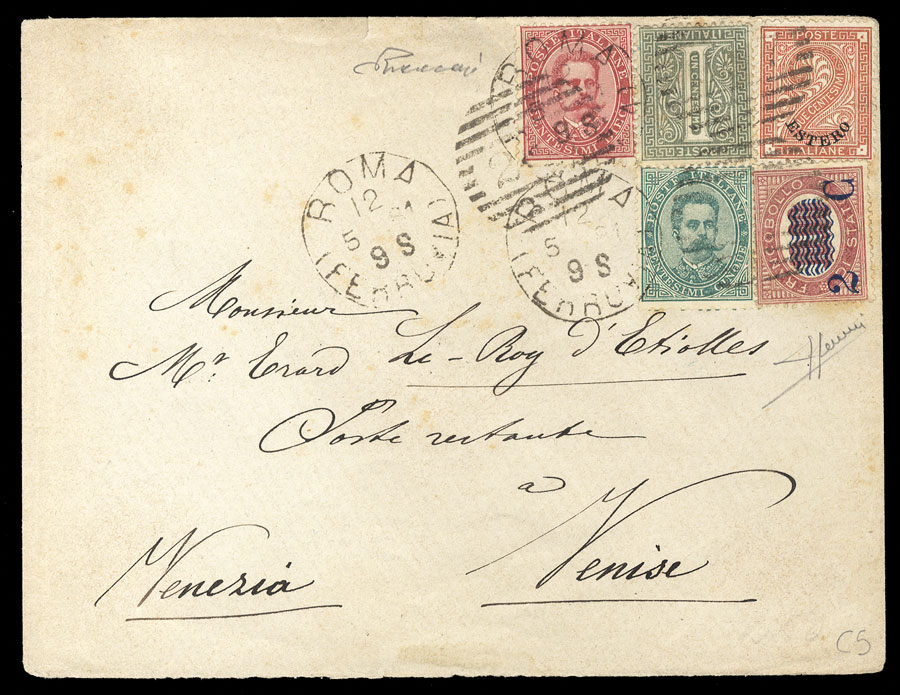 POSTE ITALIANE
CENTESIMI DIECI
POSTE ITALIANE
1
UN CENTESIMO
POSTE
ESTERO
ITALIANE
POSTE ITALIANE
CENTESIMI CINQUE
FRANCOBOLLO DI STATO
2 C
ROMA
12
5 91
9 S
(FERROVIA)
ROMA
12
5 91
9 S
(FERROVIA)
Monsieur
Mr. Erard Le-Roy d'Etiolles
Poste restante
à
Venise
Venezia
C5